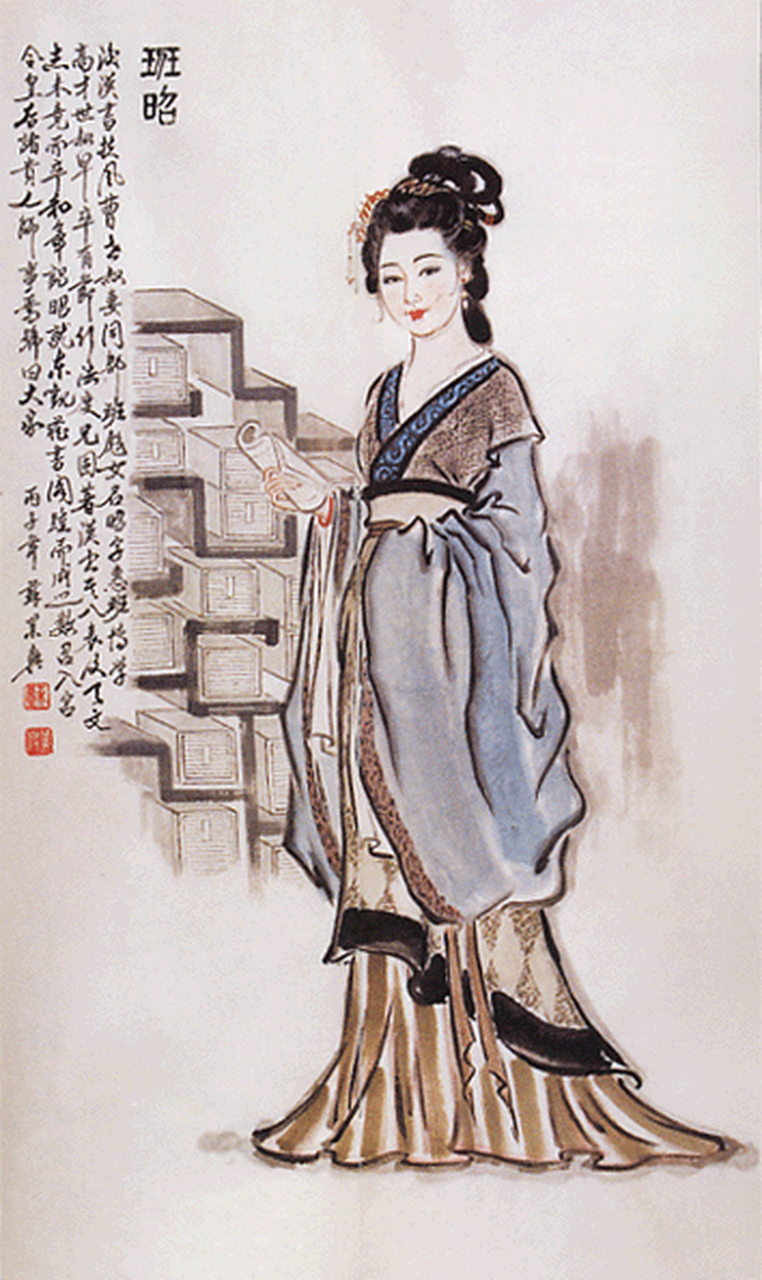 班昭
後漢書扶風曹世叔妻同郡班彪女名昭字惠班博學
高才世叔早卒有節行法度兄固著漢書其八表及天文
志未竟而卒和帝詔昭就東觀藏書閣踵而成之數召入宮
令皇后諸貴人師事焉號曰大家 丙子年